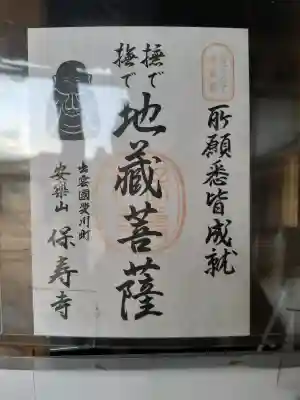 所願悉皆成就
撫で撫で地蔵菩薩
出雲國斐川町
安樂山 保寿寺